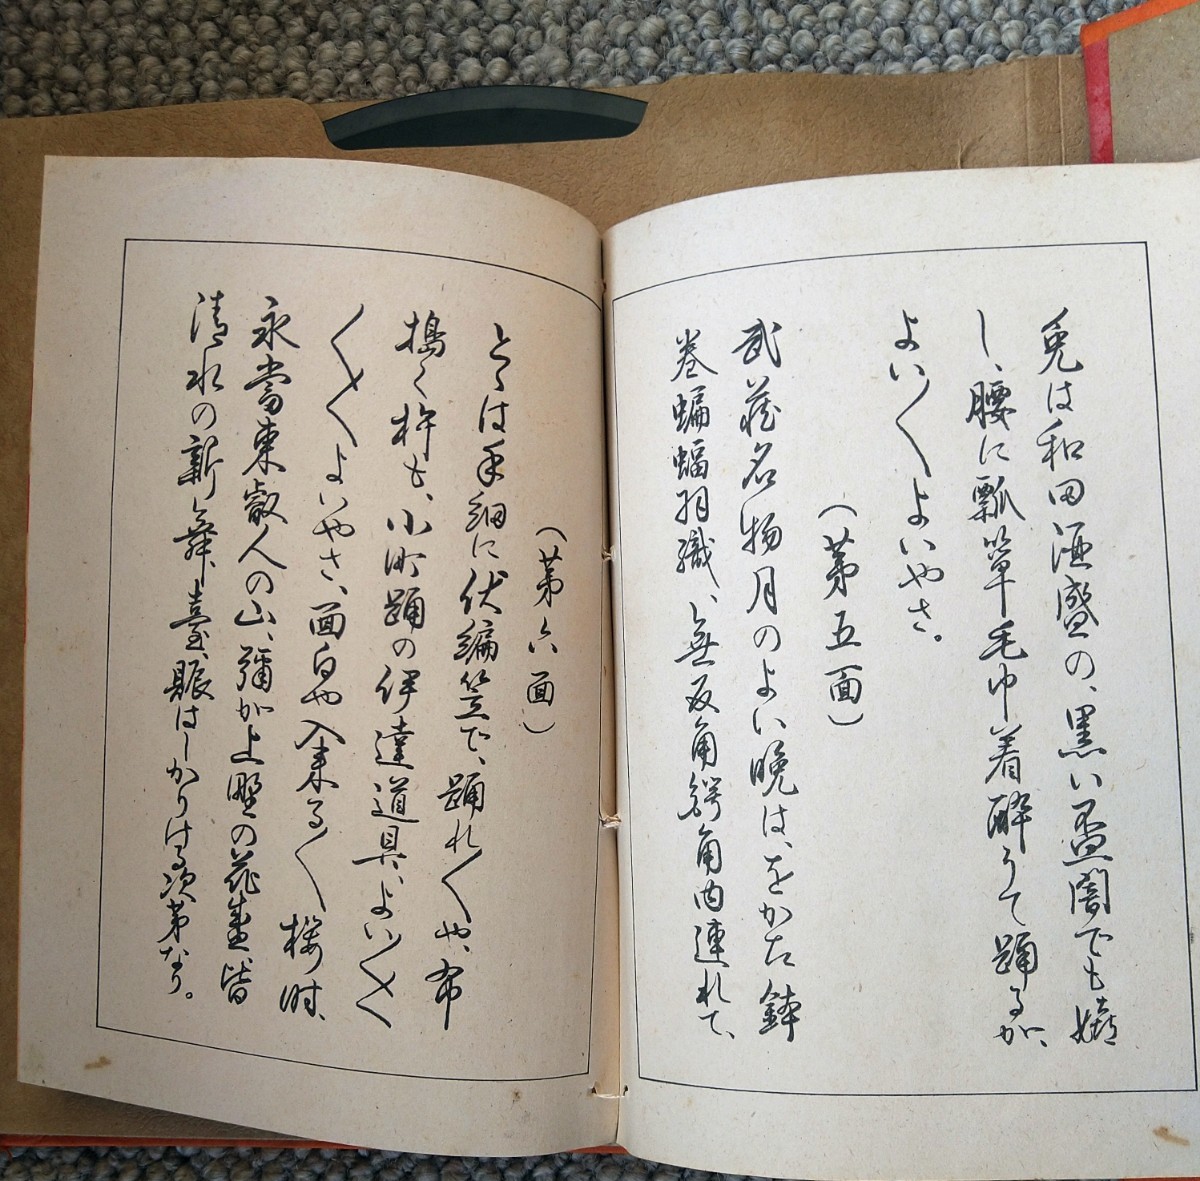 兎は和田酒盛の、黒い盃闇でも嬉
し、腰に瓢箪毛巾着酔うて踊るが、
よい〳〵よいやさ。
(第五面)
武蔵名物月のよい晩は、をかた鉢
巻蝙蝠羽織、無反角鍔角内連れて、
(第六面)
とゝは手細に伏編笠で、踊れ〳〵や、布
搗く杵も、小町踊の伊達道具、よい〳〵
〳〵〳〵よいやさ、面白や入来る〳〵桜時、
永當東叡人の山、彌が上野の花盛、皆
清水の新舞臺、賑はしかりける次第なり。